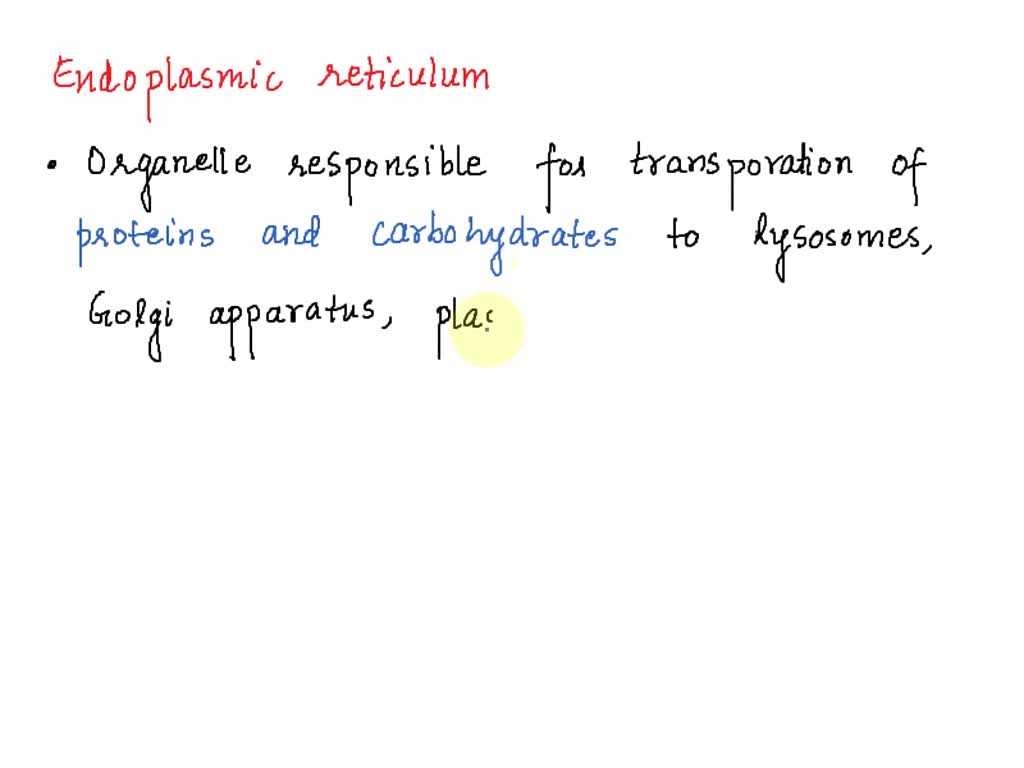 Endoplasmic reticulum
• Organelle responsible for transporation of
proteins and carbohydrates to lysosomes,
Golgi apparatus, plas